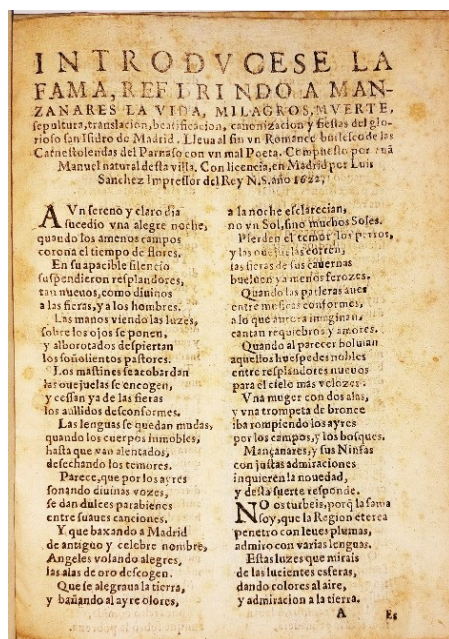 INTRODVCESE LA
FAMA, REFIRINDO A MAN-
ZANARES LA VIDA, MILAGROS, MVERTE,
sepultura, translacion, beatificacion, canonizacion y fiestas del glo-
rioso san Isidro de Madrid. Lleua al fin vn Romance burlesco de las
Carnestolendas del Parnaso con vn mal Poeta. Compuesto por
Manuel natural desta villa. Con licencia, en Madrid por Luis
Sanchez Impressor del Rey N.S. año 1622.
A Vn sereno y claro dia
sucedio vna alegre noche,
quando los amenos campos
corona el tiempo de flores.
En su apacible silencio
suspendieron resplandores,
tan nueuos, como diuinos
a las fieras, y a los hombres.
Las manos viendo las luzes,
sobre los ojos se ponen,
y alborotados despiertan
los soñolientos pastores.
Los mastines se acobardan
las ouejuelas se encogen,
y cessan ya de las fieras
los aullidos desconformes.
Las lenguas se quedan mudas,
quando los cuerpos inmobles,
hasta que van alentados,
desechando los temores.
Parece, que por los ayres
sonando diuinas vozes,
se dan dulces parabienes
entre suaues canciones.
Y que baxando a Madrid
de antiguo y celebre nombre,
Angeles volando alegres,
las alas de oro descogen.
Que se alegraua la tierra,
y bañando al ayre olores,
a la noche esclarecian,
no vn Sol, sino muchos Soles.
Pierden el temor los perros,
y las ouejuelas corren,
las fieras de sus cauernas
bueluen ya menos ferozes.
Quando las parleras aues
entre musicas conformes,
a lo que aurora imaginan,
cantan requiebros y amores.
Quando al parecer boluian
aquellos huespedes nobles
entre resplandores nueuos
para el cielo más velozes.
Vna muger con dos alas,
y vna trompeta de bronce
iba rompiendo los ayres
por los campos, y los bosques.
Mançanares, y sus Ninfas
con justas admiraciones
inquieren la nouedad,
y desta suerte responde.
NO os turbeis, porq̃ la fama
soy, que la Region eterea
penetro con leues plumas,
admiro con varias lenguas.
Estas luzes que mirais
de las lucientes esferas,
dando colores al aire,
y admiracion a la tierra.
A Es